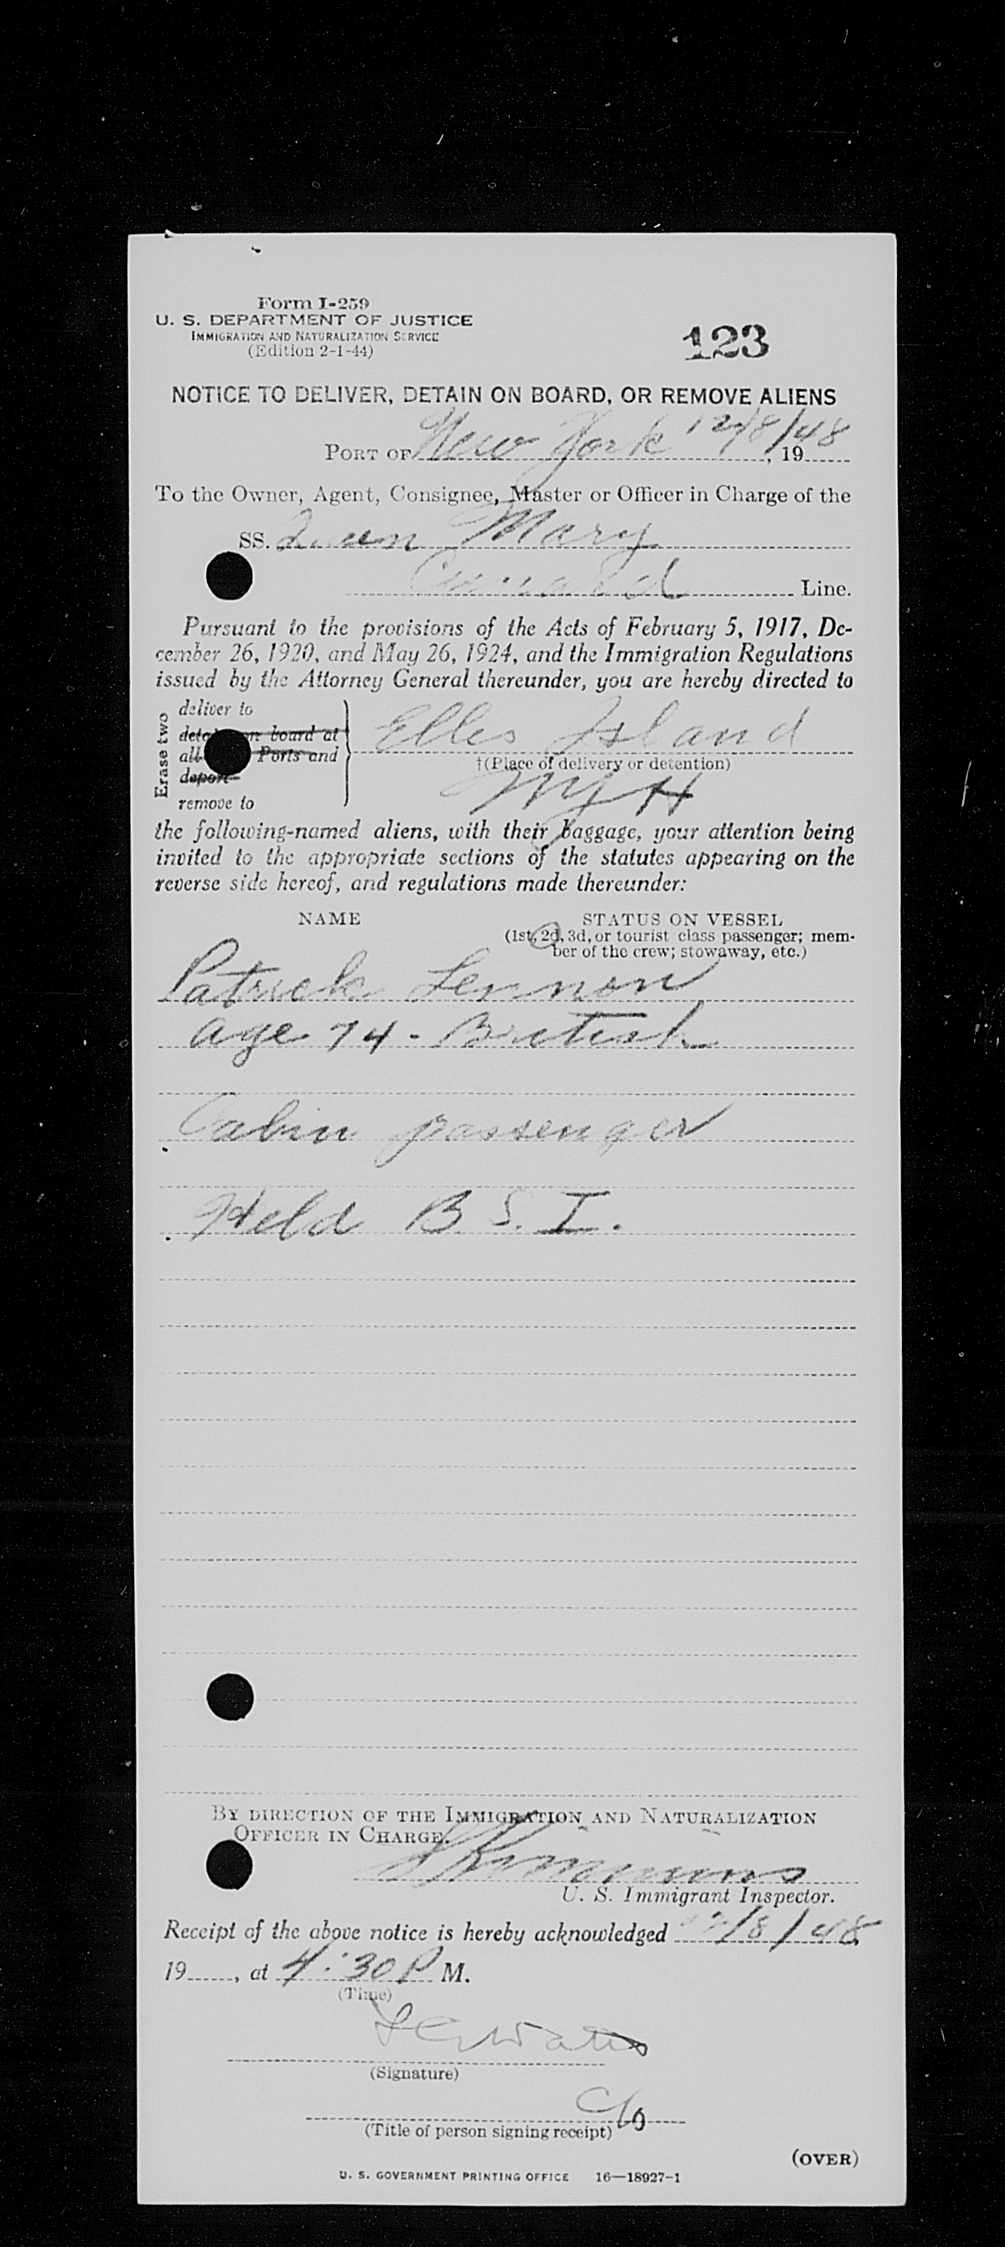 Form I-259
U. S. DEPARTMENT OF JUSTICE
IMMIGRATION AND NATURALIZATION SERVICE
(Edition 2-1-44)
123
NOTICE TO DELIVER, DETAIN ON BOARD, OR REMOVE ALIENS
PORT OF New York 12/8/48, 19
To the Owner, Agent, Consignee, Master or Officer in Charge of the
SS. Queen Mary
Cunard Line.
Pursuant to the provisions of the Acts of February 5, 1917, De-
cember 26, 1920, and May 26, 1924, and the Immigration Regulations
issued by the Attorney General thereunder, you are hereby directed to
Erase two
deliver to
on board at
all Ports and
deport
remove to
Elles Island
†(Place of delivery or detention)
NYH
the following-named aliens, with their baggage, your attention being
invited to the appropriate sections of the statutes appearing on the
reverse side hereof, and regulations made thereunder:
NAME
STATUS ON VESSEL
(1st, 2d, 3d, or tourist class passenger; mem-
ber of the crew; stowaway, etc.)
Patrick Lennon
age 74 - British
Cabin passenger
Held B.S.I.
BY DIRECTION OF THE IMMIGRATION AND NATURALIZATION
OFFICER IN CHARGE.
U. S. Immigrant Inspector.
Receipt of the above notice is hereby acknowledged 12/8/48
19, at 4:30 P M.
(Time)
(Signature)
(Title of person signing receipt)
(OVER)
U. S. GOVERNMENT PRINTING OFFICE 16—18927-1